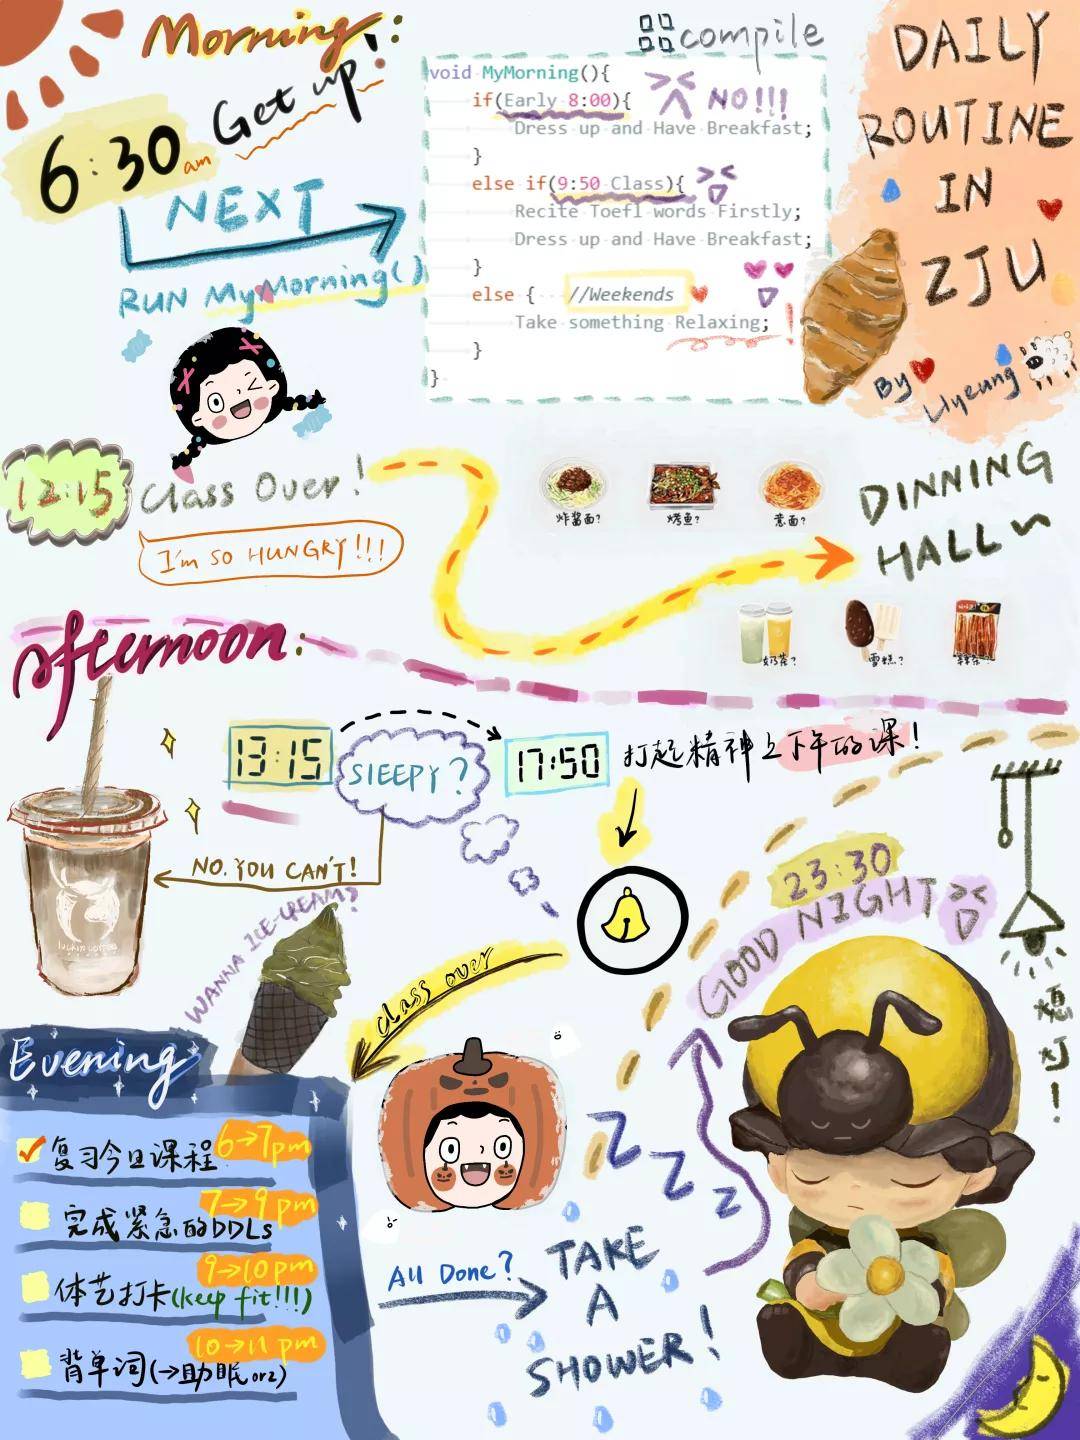 Morning:
6:30 am
Get up!
NEXT
RUN MyMorning()
compile
void MyMorning(){
if(Early 8:00){
NO!!!
Dress up and Have Breakfast;
}
else if(9:50 Class){
Recite Toefl words Firstly;
Dress up and Have Breakfast;
}
else { //Weekends
Take something Relaxing;
}
}
DAILY
ROUTINE
IN
ZJU
By
12:15
Class Over!
I'm SO HUNGRY!!!
炸酱面?
烤鱼?
意面?
DINNING
HALL~
奶茶?
雪糕?
辣条?
Afternoon:
13:15
SIEEPY?
17:50
打起精神上下午的课!
NO. YOU CAN'T!
luckin coffee
WANNA ICE-CREAM?
class over
23:30
GOOD NIGHT
熄灯!
Evening
复习今日课程 6→7pm
完成紧急的DDLs 7→9pm
体艺打卡(keep fit!!!) 9→10pm
背单词(→助眠orz) 10→11pm
All Done?
TAKE
A
SHOWER!
Z
Z
Z